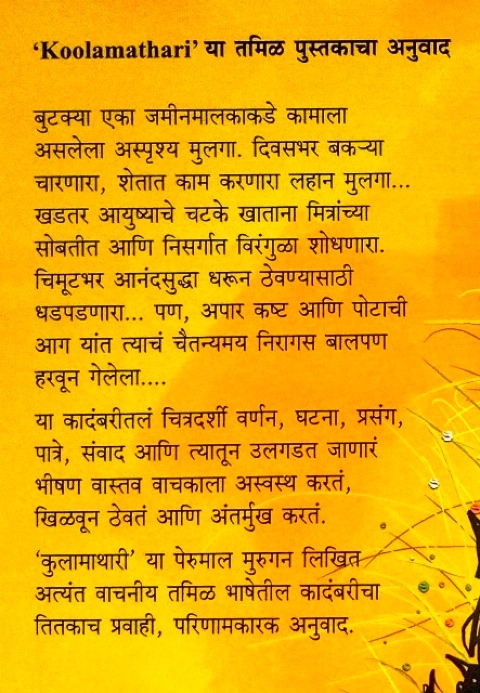 ‘Koolamathari’ या तमिळ पुस्तकाचा अनुवाद
बुटक्या एका जमीनमालकाकडे कामाला
असलेला अस्पृश्य मुलगा. दिवसभर बकऱ्या
चारणारा, शेतात काम करणारा लहान मुलगा...
खडतर आयुष्याचे चटके खाताना मित्रांच्या
सोबतीत आणि निसर्गात विरंगुळा शोधणारा.
चिमूटभर आनंदसुद्धा धरून ठेवण्यासाठी
धडपडणारा... पण, अपार कष्ट आणि पोटाची
आग यांत त्याचं चैतन्यमय निरागस बालपण
हरवून गेलेला....
या कादंबरीतलं चित्रदर्शी वर्णन, घटना, प्रसंग,
पात्रे, संवाद आणि त्यातून उलगडत जाणारं
भीषण वास्तव वाचकाला अस्वस्थ करतं,
खिळवून ठेवतं आणि अंतर्मुख करतं.
‘कुलामाथारी’ या पेरुमाल मुरुगन लिखित
अत्यंत वाचनीय तमिळ भाषेतील कादंबरीचा
तितकाच प्रवाही, परिणामकारक अनुवाद.